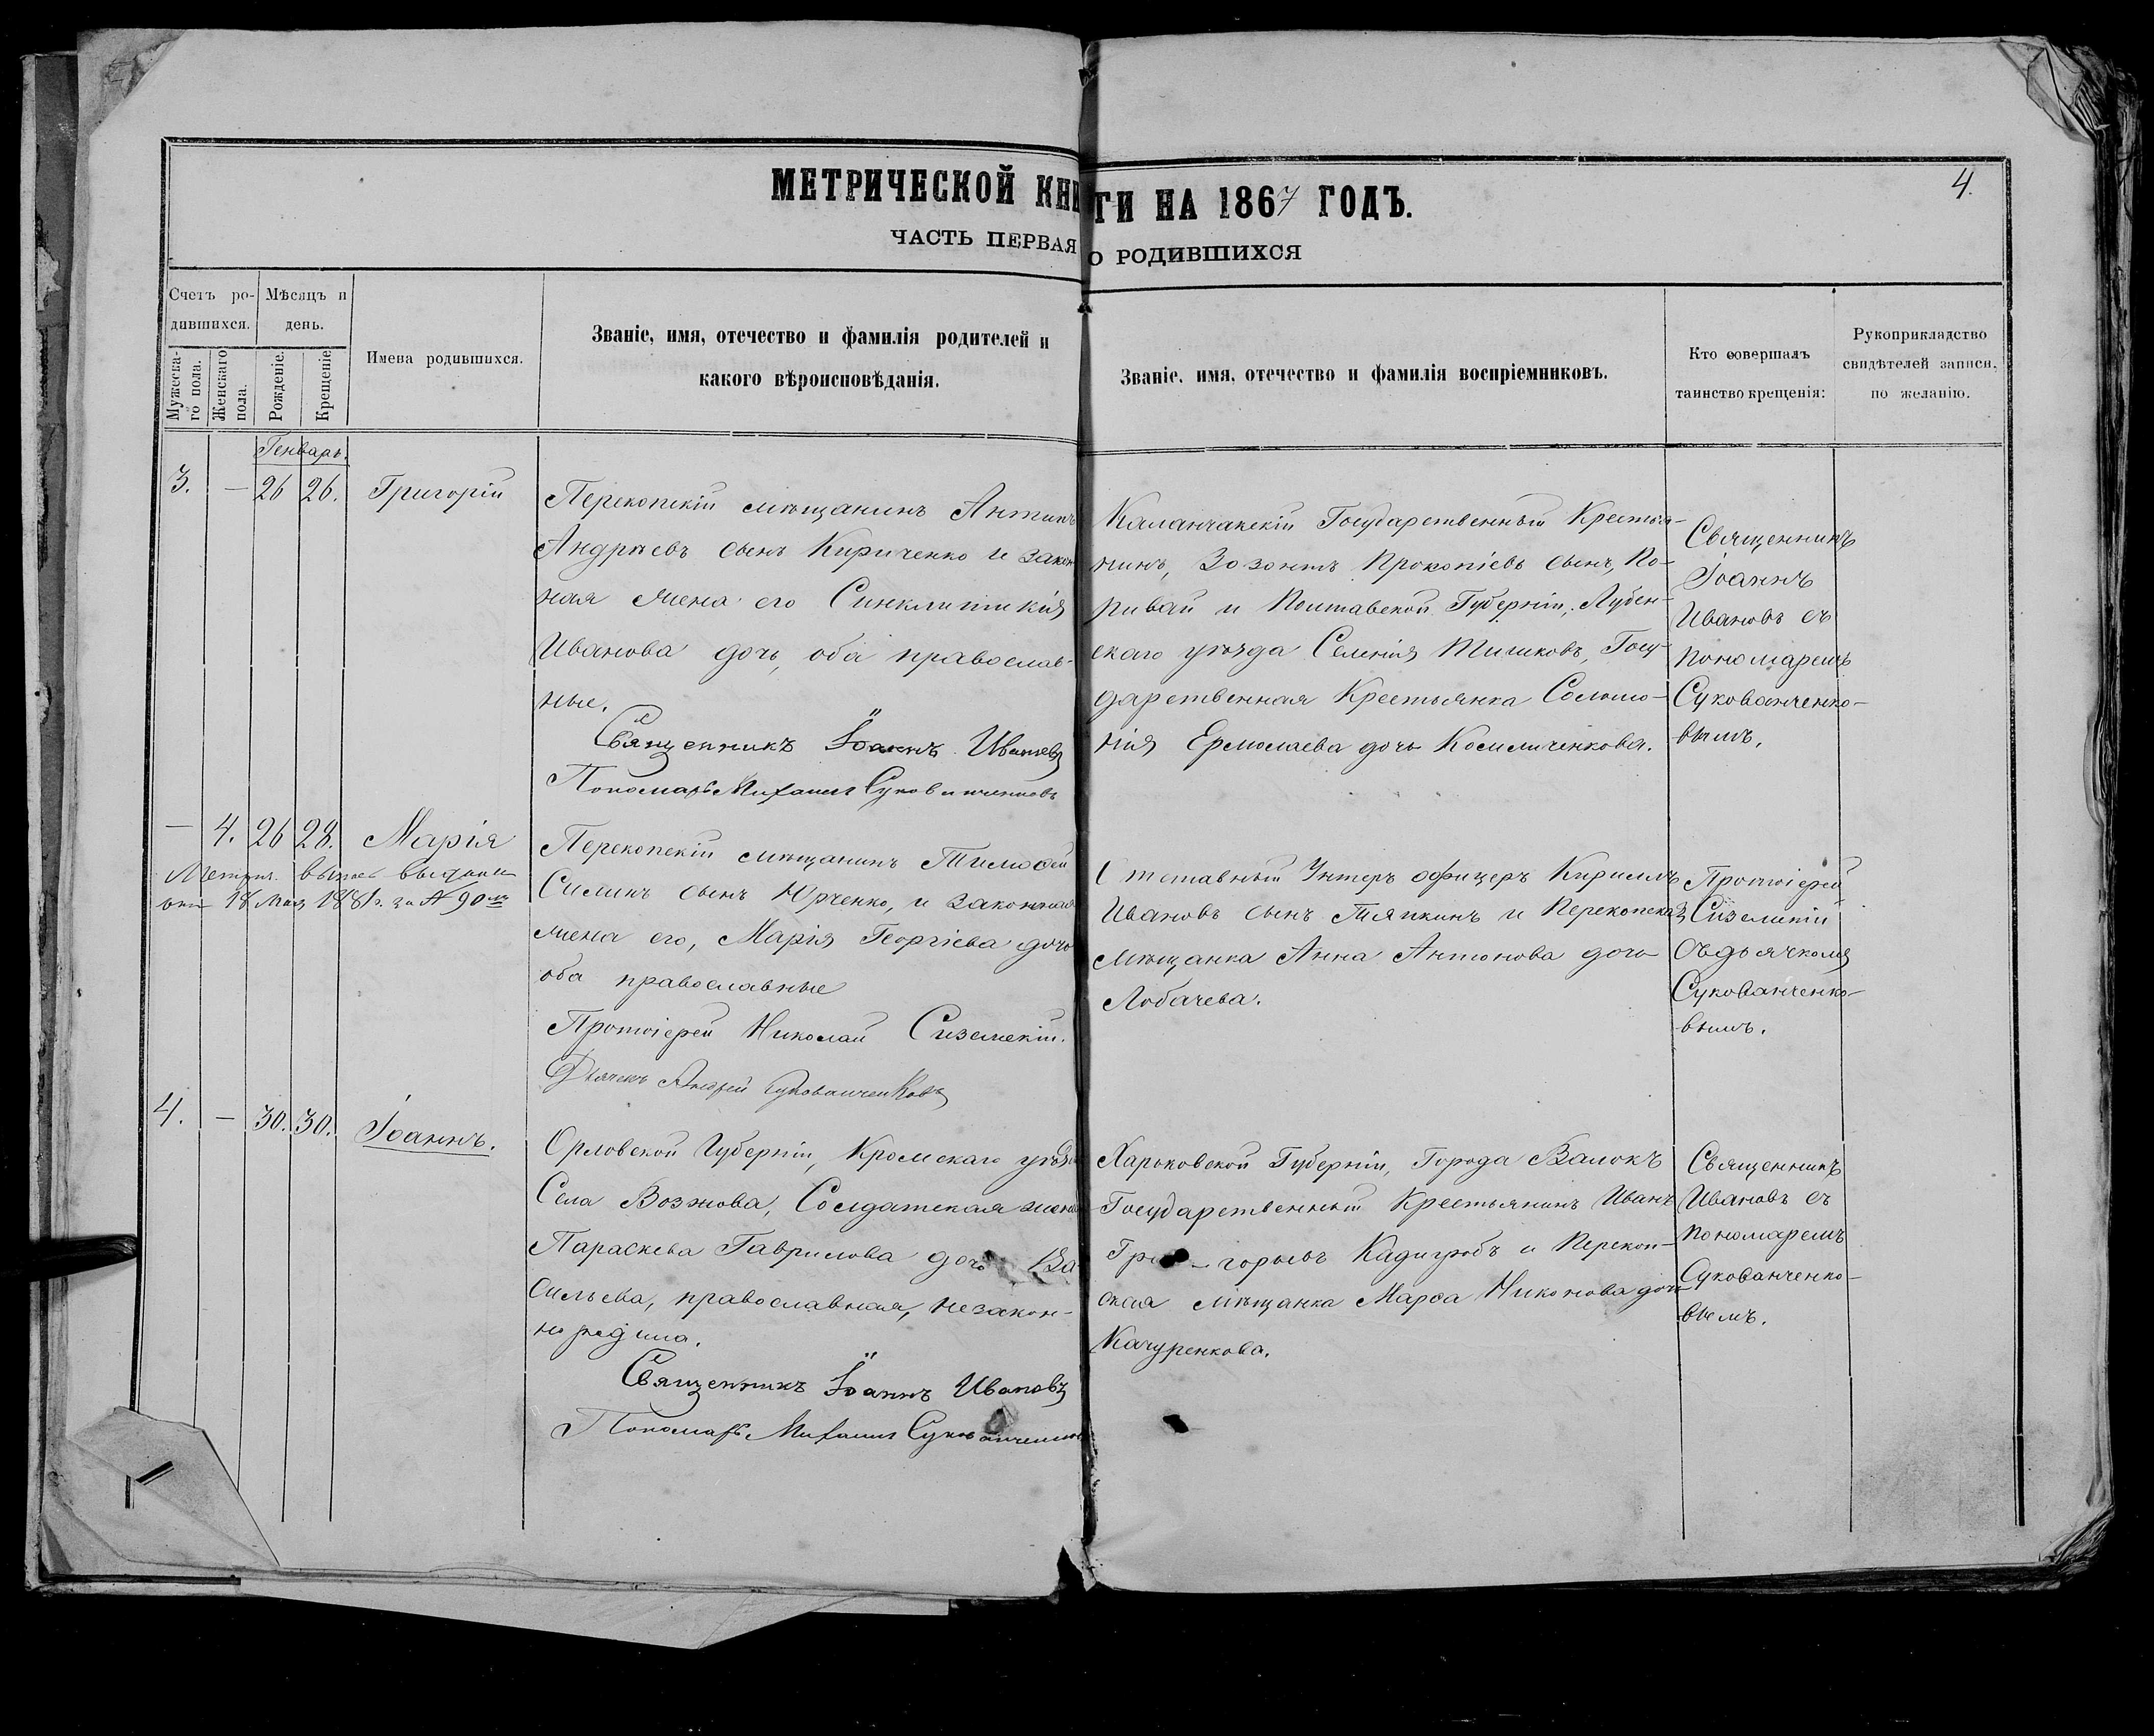 МЕТРИЧЕСКОЙ КНИГИ НА 1867 ГОДЪ.
4.
ЧАСТЬ ПЕРВАЯ О РОДИВШИХСЯ
Счетъ ро-
дившихся.
Мужеска-
го пола.
Женскаго
пола.
Мѣсяцъ и
день.
Рожденіе.
Крещеніе
Имена родившихся.
Званіе, имя, отечество и фамилія родителей и
какого вѣроисповѣданія.
Званіе, имя, отечество и фамилія воспріемниковъ.
Кто совершалъ
таинство крещенія:
Рукоприкладство
свидѣтелей записи,
по желанію.
Генварь.
3. — 26 26. Григорій
Перекопскій мѣщанинъ Антипъ
Андрѣевъ сынъ Кириченко и закон
ная жена его Синклитикія
Иванова дочь, оба православ-
ные.
Священникъ Іоаннъ Ивановъ
Пономарь Михаилъ Сукованченковъ
Каланчакскій Государственный Крестья-
нинъ, Зозонтъ Прокопіевъ сынъ, По-
ривай и Полтавской Губерніи, Лубен-
скаго уѣзда Селенія Тишковъ, Госу-
дарственная Крестьянка Соломо-
нія Ермолаева дочь Косиличенкова.
Священникъ
Іоаннъ
Ивановъ съ
пономаремъ
Сукованченко-
вымъ.
— 4. 26 28. Марія
Метрич. выпись выдана
18 Мая 1881 г. за № 90
Перекопскій мѣщанинъ Тимофей
Силинъ сынъ Юрченко, и законная
жена его, Марія Георгіева дочь
оба православные
Протоіерей Николай Сиземскій.
Дьячекъ Андрей Сукованченковъ
Отставный Унтеръ офицеръ Кириллъ
Ивановъ сынъ Тяпкинъ и Перекопская
мѣщанка Анна Антонова дочь
Лобачева.
Протоіерей
Сиземскій
съ дьячкомъ
Сукованченко-
вымъ.
4. — 30. 30. Іоаннъ.
Орловской Губерніи, Кромскаго уѣзда
Села Возжова, Солдатская жена
Параскева Гаврилова дочь Ва
сильева, православная, незакон-
но родила.
Священникъ Іоаннъ Ивановъ
Пономарь Михаилъ Сукованченковъ
Харьковской Губерніи, Города Валокъ
Государственный Крестьянинъ Иванъ
Гри- горьевъ Кадигробъ и Перекоп-
ская мѣщанка Марѳа Никонова дочь
Качуренкова.
Священникъ
Ивановъ съ
пономаремъ
Сукованченко-
вымъ.